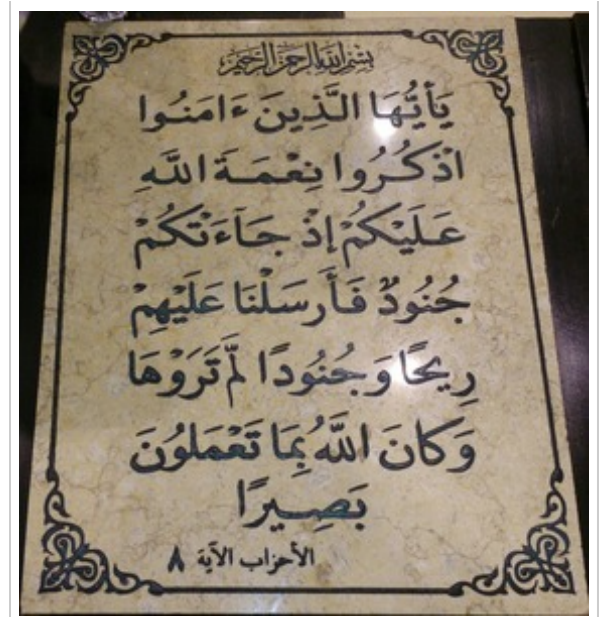 بسم الله الرحمن الرحيم
يَٰٓأَيُّهَا الَّذِينَ ءَامَنُوا
اذْكُرُوا نِعْمَةَ اللَّهِ
عَلَيْكُمْ إِذْ جَآءَتْكُمْ
جُنُودٌ فَأَرْسَلْنَا عَلَيْهِمْ
رِيحًا وَجُنُودًا لَّمْ تَرَوْهَا
وَكَانَ اللَّهُ بِمَا تَعْمَلُونَ
بَصِيرًا
الأحزاب الآية ٨